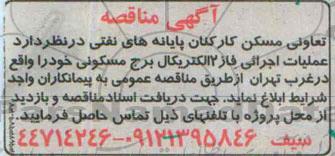 آگهی مناقصه
تعاونی مسکن کارکنان پایانه های نفتی درنظردارد
عملیات اجرائی فاز۲الکتریکال برج مسکونی خودرا واقع
درغرب تهران ازطریق مناقصه عمومی به پیمانکاران واجد
شرایط ابلاغ نماید. جهت دریافت اسنادمناقصه و بازدید
از محل پروژه با تلفنهای ذیل تماس حاصل فرمایید.
سیف ۰۹۱۲۱۳۹۵۸۴۶-۴۴۷۱۴۲۴۶